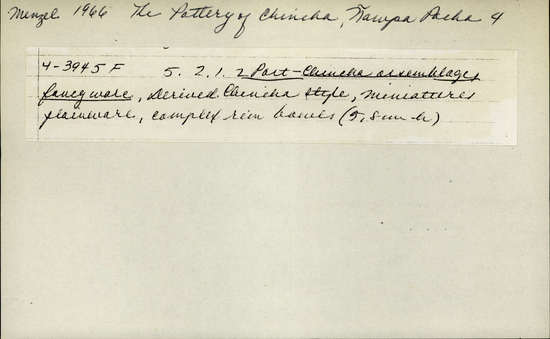 Menzel 1966 The Pottery of Chincha, Ñawpa Pacha 4
4-3945 F 5.2.1.2 Post-Chincha assemblage,
fancyware, Derived Chincha style, miniatures
plainware, complex rim bowls (5.8 cm h)